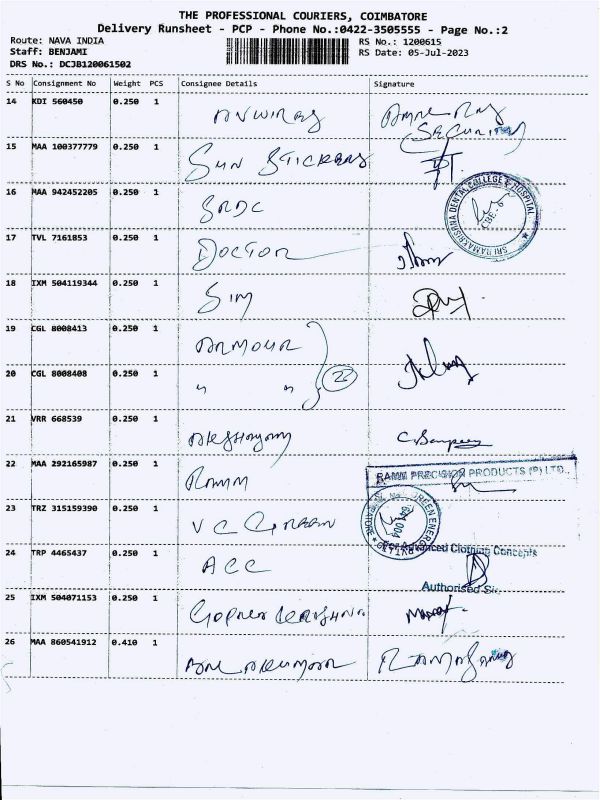 THE PROFESSIONAL COURIERS, COIMBATORE
Delivery Runsheet - PCP - Phone No.:0422-3505555 - Page No.:2
Route: NAVA INDIA
RS No.: 1200615
Staff: BENJAMI
RS Date: 05-Jul-2023
DRS No.: DCJB120061502
S No Consignment No Weight PCS Consignee Details Signature
14 KDI 560450 0.250 1
(SECURITY)
15 MAA 100377779 0.250 1 SUN STICKERS
16 MAA 942452205 0.250 1 SRDC
SRI RAMAKRISHNA DENTAL COLLEGE & HOSPITAL
CBE-6
17 TVL 7161853 0.250 1 DOCTOR
18 IXM 504119344 0.250 1 SIM
19 CGL 8008413 0.250 1 ARMOUR
20 CGL 8008408 0.250 1 " " 2
21 VRR 668539 0.250 1
22 MAA 292165987 0.250 1 RAMM
RAMM PRECISION PRODUCTS (P) LTD.,
23 TRZ 315159390 0.250 1 V C GREEN
GREEN ENERGY
24 TRP 4465437 0.250 1 ACC
For Advanced Clothing Concepts
Authorised Sig
25 IXM 504071153 0.250 1 GOPALA KRISHNA
26 MAA 860541912 0.410 1